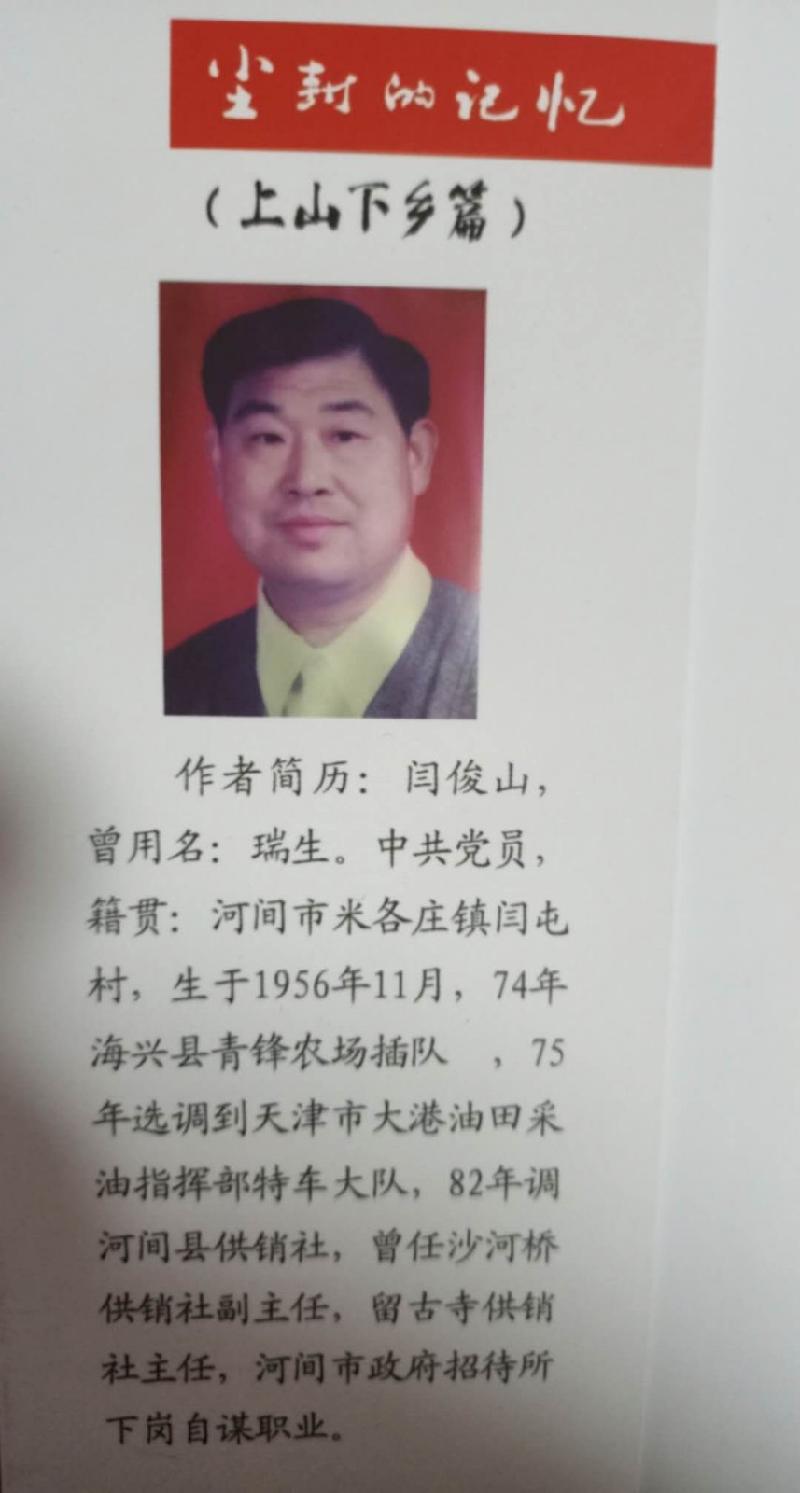 尘封的记忆
（上山下乡篇）
作者简历：闫俊山，
曾用名：瑞生。中共党员，
籍贯：河间市米各庄镇闫屯
村，生于1956年11月，74年
海兴县青锋农场插队 ，75
年选调到天津市大港油田采
油指挥部特车大队，82年调
河间县供销社，曾任沙河桥
供销社副主任，留古寺供销
社主任，河间市政府招待所
下岗自谋职业。